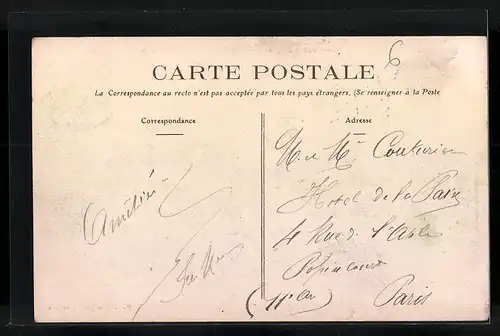 CARTE POSTALE
La Correspondance au recto n'est pas acceptée par tous les pays étrangers. (Se renseigner à la Poste
Correspondance
Adresse
Amitiés
M et Mme Couturier
Hotel de la Paix
4 Rue de l'Asile
Popincourt
(11e Ar)
Paris